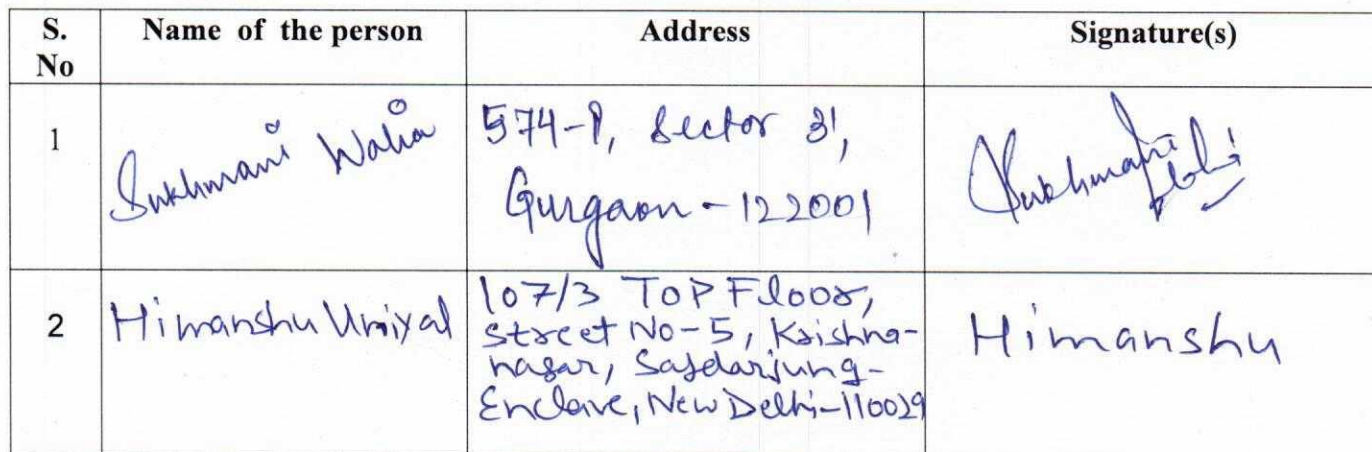 S. No Name of the person Address Signature(s)
1 Sukhmani Walia 574-P, Sector 31,
Gurgaon - 122001
Sukhmani
2 Himanshu Uniyal 107/3 TOP Floor,
Street No-5, Krishna-
nagar, Safdarjung-
Enclave, New Delhi-110029
Himanshu